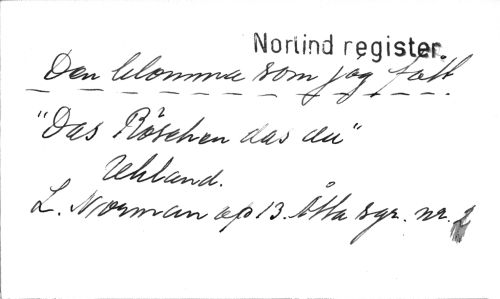 Norlind register.
Den blomma som jag fått.
"Das Röschen das du"
Uhland.
L. Norman op 13. Åtta sgr. nr. 2